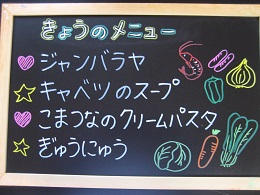 きょうのメニュー
ジャンバラヤ
キャベツのスープ
こまつなのクリームパスタ
ぎゅうにゅう